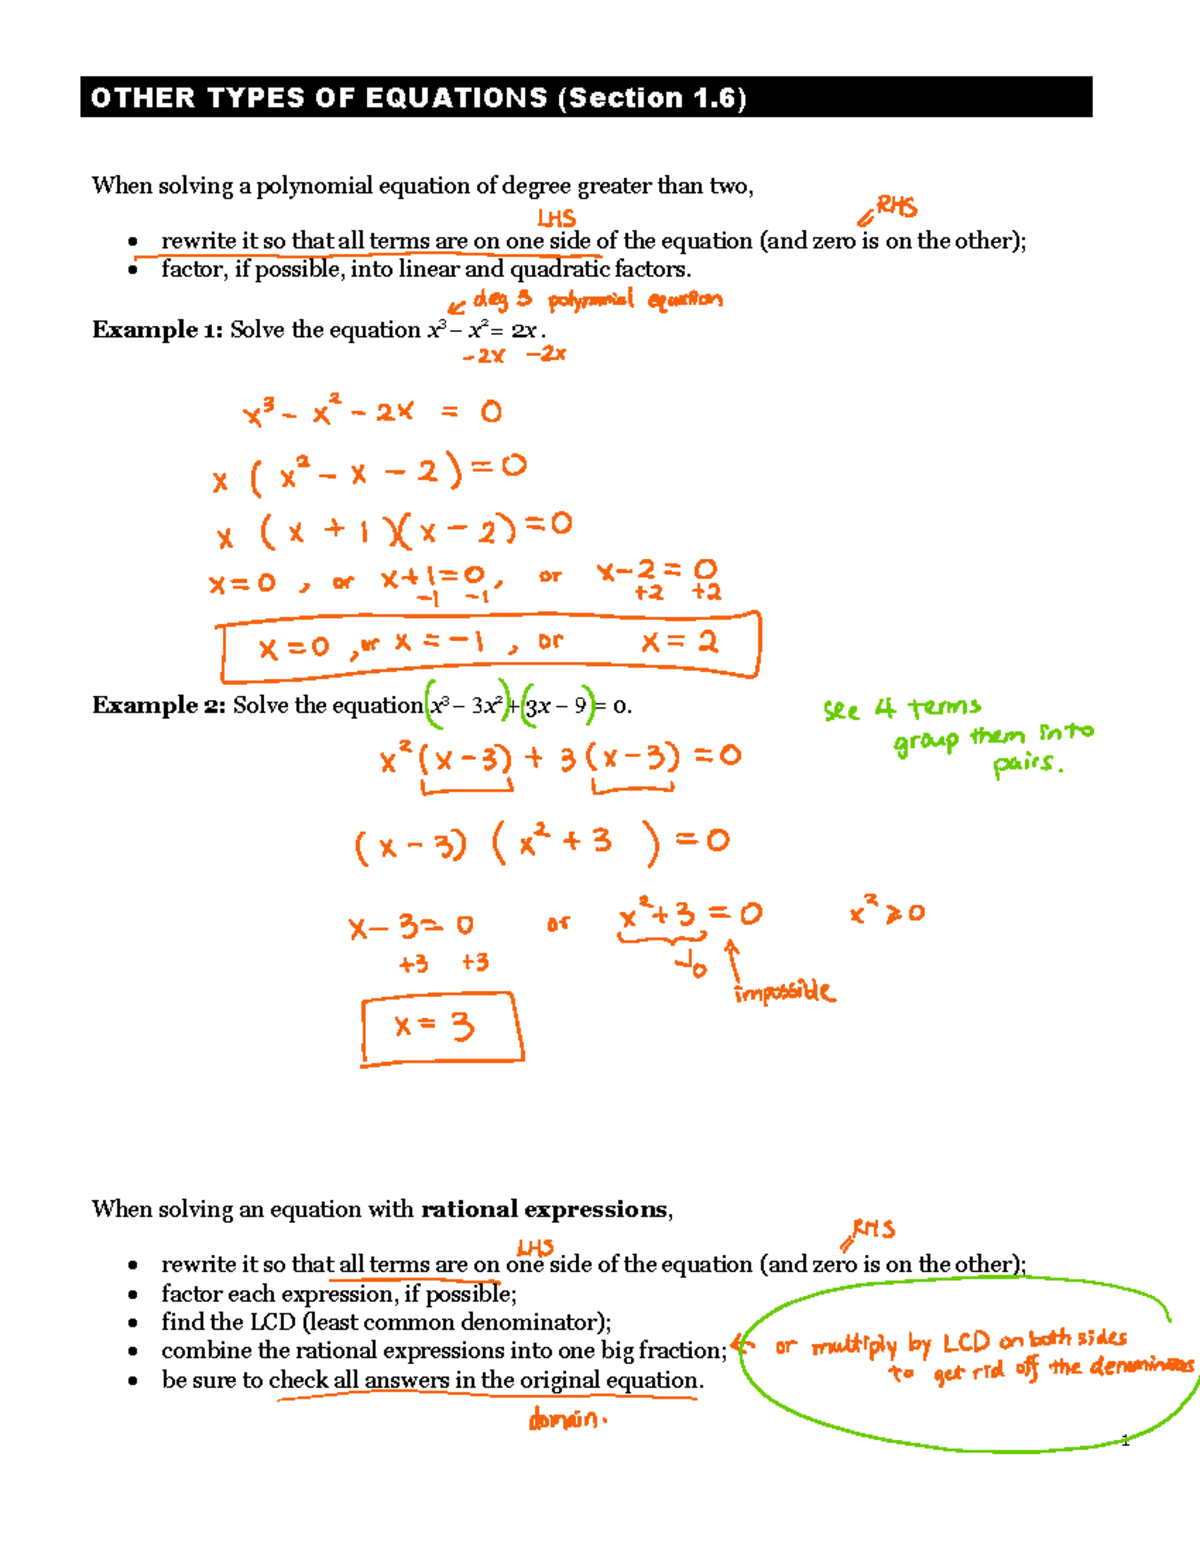 OTHER TYPES OF EQUATIONS (Section 1.6)
When solving a polynomial equation of degree greater than two,
LHS
RHS
• rewrite it so that all terms are on one side of the equation (and zero is on the other);
• factor, if possible, into linear and quadratic factors.
deg 3 polynomial equation
Example 1: Solve the equation x³ – x² = 2x.
-2x -2x
x³ - x² - 2x = 0
x ( x² - x - 2 ) = 0
x ( x + 1 )( x - 2 ) = 0
x = 0 , or x+1=0 , or x-2 = 0
-1 -1 +2 +2
x = 0 , or x = -1 , or x = 2
Example 2: Solve the equation (x³ – 3x²)+(3x – 9)= 0.
see 4 terms
group them into
pairs.
x² (x-3) + 3 (x-3) = 0
(x-3) ( x² + 3 ) = 0
x-3=0 or x²+3 = 0 x² ⩾ 0
+3 +3
impossible
x = 3
When solving an equation with rational expressions,
LHS
RHS
• rewrite it so that all terms are on one side of the equation (and zero is on the other);
• factor each expression, if possible;
• find the LCD (least common denominator);
• combine the rational expressions into one big fraction;
or multiply by LCD on both sides
to get rid off the
• be sure to check all answers in the original equation.
domain.
1